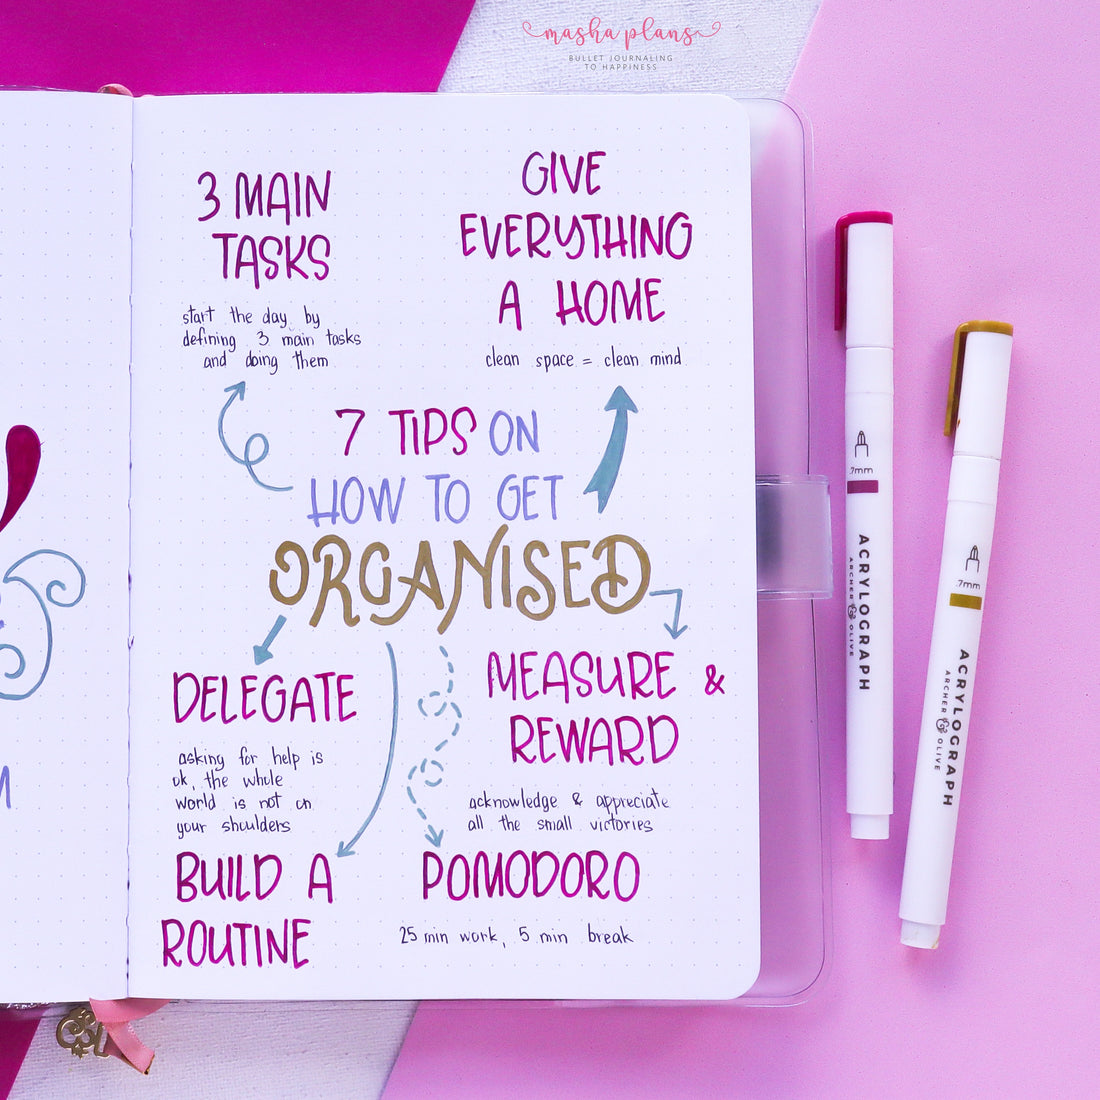 masha plans
BULLET JOURNALING
TO HAPPINESS
3 MAIN
TASKS
start the day by
defining 3 main tasks
and doing them
GIVE
EVERYTHING
A HOME
clean space = clean mind
7 TIPS ON
HOW TO GET
ORGANISED
DELEGATE
asking for help is
ok, the whole
world is not on
your shoulders
MEASURE &
REWARD
acknowledge & appreciate
all the small victories
BUILD A
ROUTINE
POMODORO
25 min work, 5 min break
.7mm
ACRYLOGRAPH
ARCHER & OLIVE
.7mm
ACRYLOGRAPH
ARCHER & OLIVE